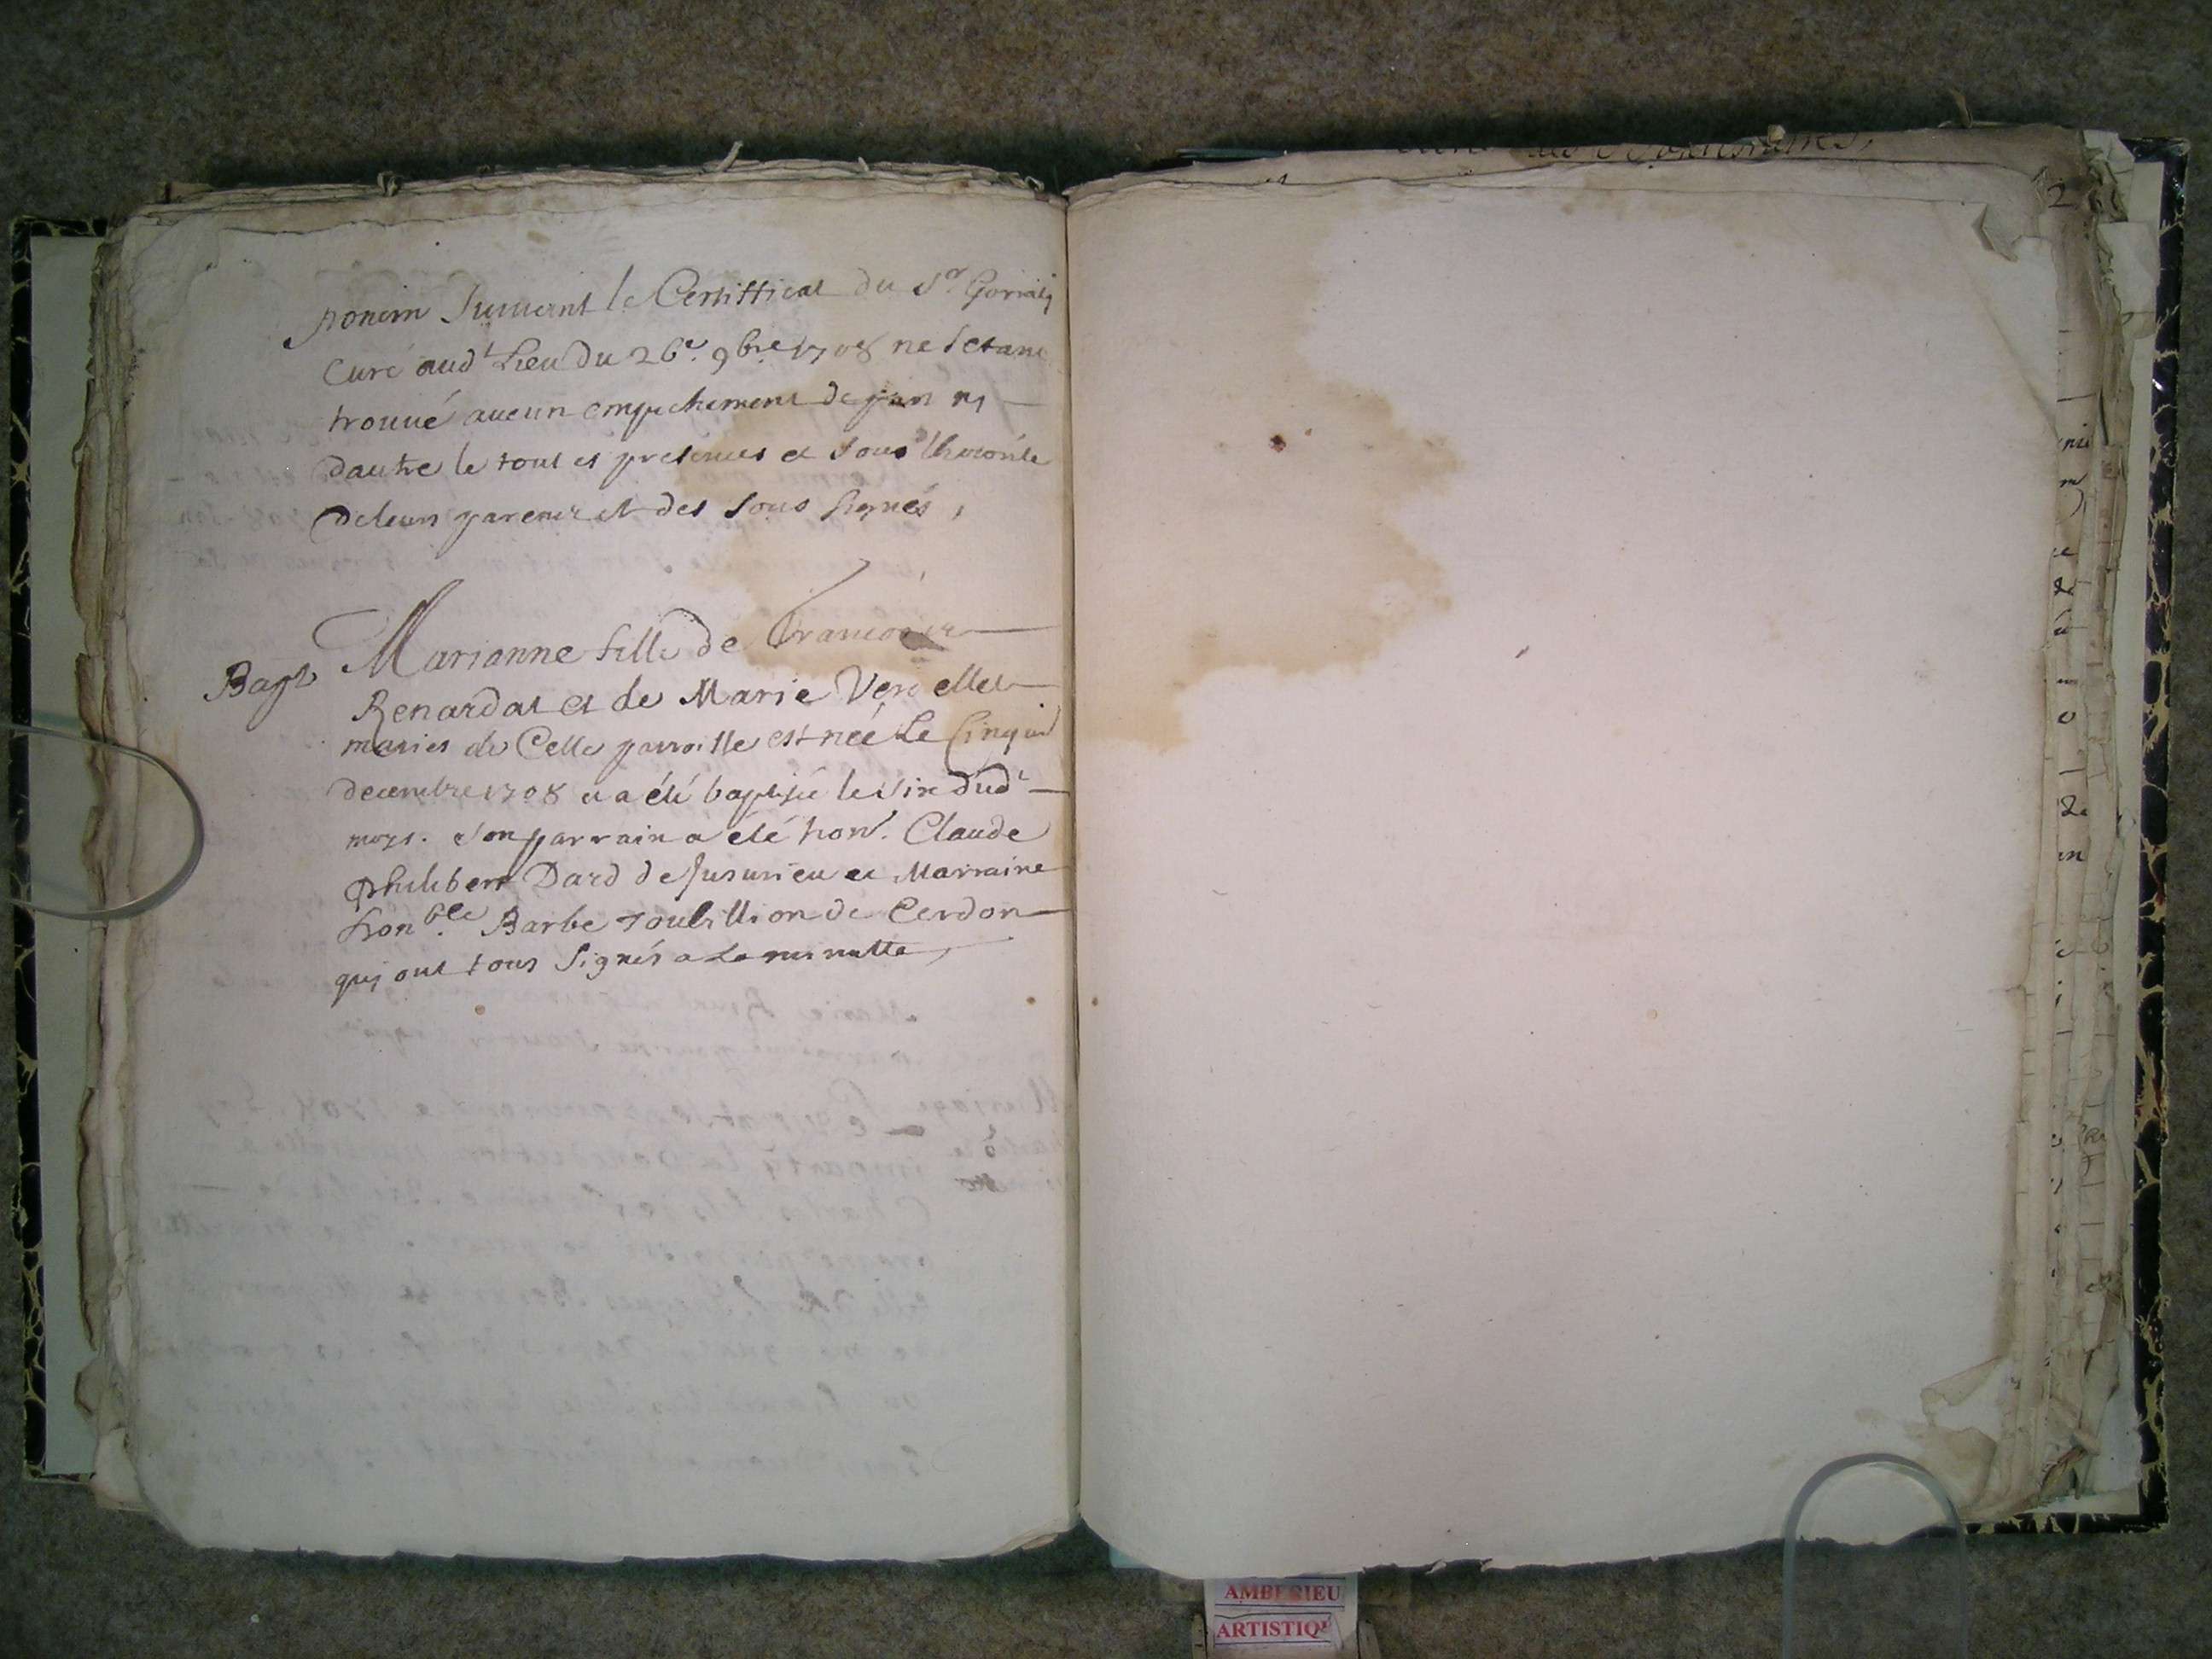 poncin suivant le Certifficat du Sr. Gorraty
Curé audt Lieu du 26e. 9bre 1708 ne sétant
trouvé aucun empechement de part ny
dautre le tout es presences et sous lhotorité
de leurs parents et des sous signés,
Bapt Marianne fille de Francois
Renardat et de Marie Vercellet
mariés de Celle parroisse est née Le Cinqui
decembre 1708 et a été baptisée le six dudt
moys. son parrain a été hon. Claude
Philibert Dard de Jusurieu et Marraine
honble Barbe Toubillion de Cerdon
quj ont tous signés a La minutte
2
AMBERIEU
ARTISTIQU